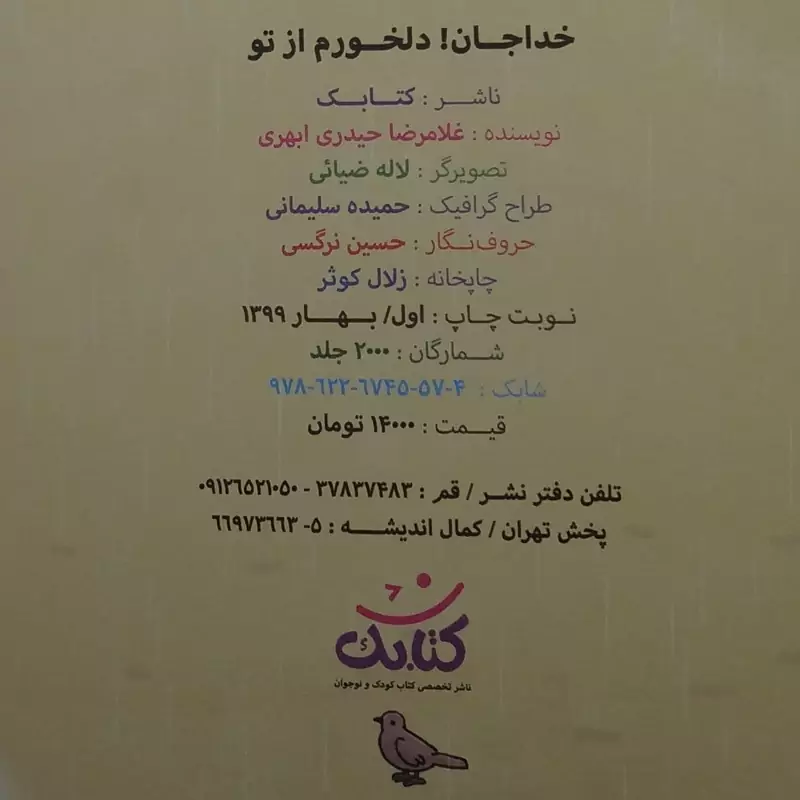 خداجــان! دلخــورم از تو
ناشــر : کتــابــک
نویسنده : غلامرضا حیدری ابهری
تصویرگر : لاله ضیائی
طراح گرافیک : حمیده سلیمانی
حروف‌نـگار : حسین نرگسی
چاپخانه : زلال کوثر
نـوبـت چـاپ : اول/ بــهــار ۱۳۹۹
شمــارگان : ۲۰۰۰ جلد
شابک : ۹۷۸-۶۲۲-۶۷۴۵-۵۷-۴
قیــمت : ۱۴۰۰۰ تومان
تلفن دفتر نشــر / قم : ۳۷۸۳۷۴۸۳ - ۰۹۱۲۶۵۲۱۰۵۰
پخش تهران / کمال اندیشــه : ۵- ۶۶۹۷۳۶۶۳
کتابک
ناشر تخصصی کتاب کودک و نوجوان